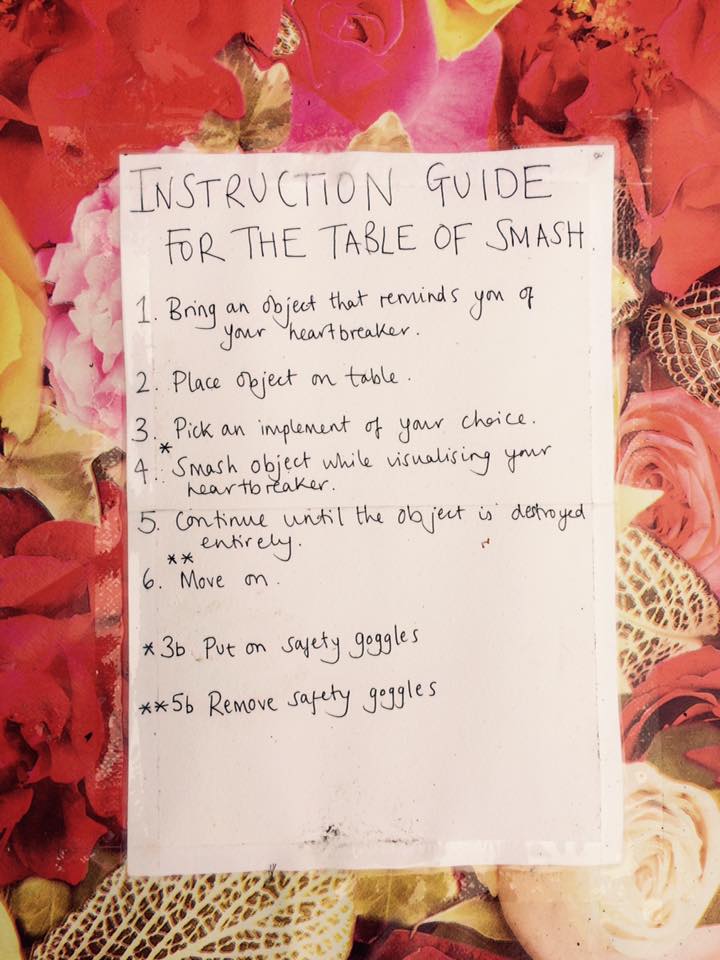 INSTRUCTION GUIDE
FOR THE TABLE OF SMASH.
1. Bring an object that reminds you of
your heartbreaker.
2. Place object on table.
3. Pick an implement of your choice.
*
4. Smash object while visualising your
heartbreaker.
5. Continue until the object is destroyed
entirely.
**
6. Move on.
* 3b Put on safety goggles
** 5b Remove safety goggles